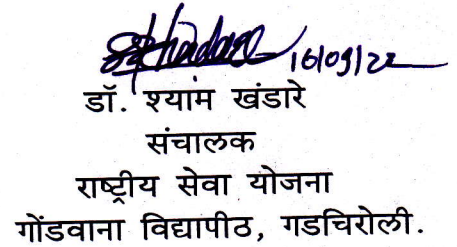 16/09/22
डॉ. श्याम खंडारे
संचालक
राष्ट्रीय सेवा योजना
गोंडवाना विद्यापीठ, गडचिरोली.